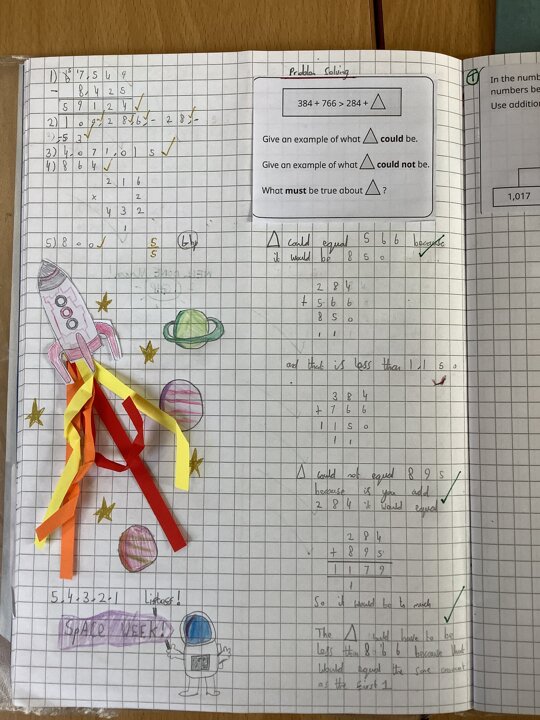 1) 6 5 '7, 5 4 9
- 8, 4 2 5
5 9 1 2 4
2) 109, 28, -28,
-53
3) 4,071,015
4) 864
2 1 6
x 2
4 3 2
1
5) 800
5
5
5.4.3.2.1
SPACE WEEK!
Problem Solving
384 + 766 > 284 +
Give an example of what could be.
Give an example of what could not be.
What must be true about ?
Δ could equal 566 because
it would be 850
2 8 4
+ 5 6 6
8 5 0
1 1
and that is less than 1,150
.
3 8 4
+ 7 6 6
1 1 5 0
1 1
Δ could not equal 895
because is you add
284 it would equal
2 8 4
+ 8 9 5
1 1 7 9
1
So it would be to much
The Δ would have to be
less than 866 because that
would equal the same amount
as the first 1
In the numb
numbers be
Use addition
1,017